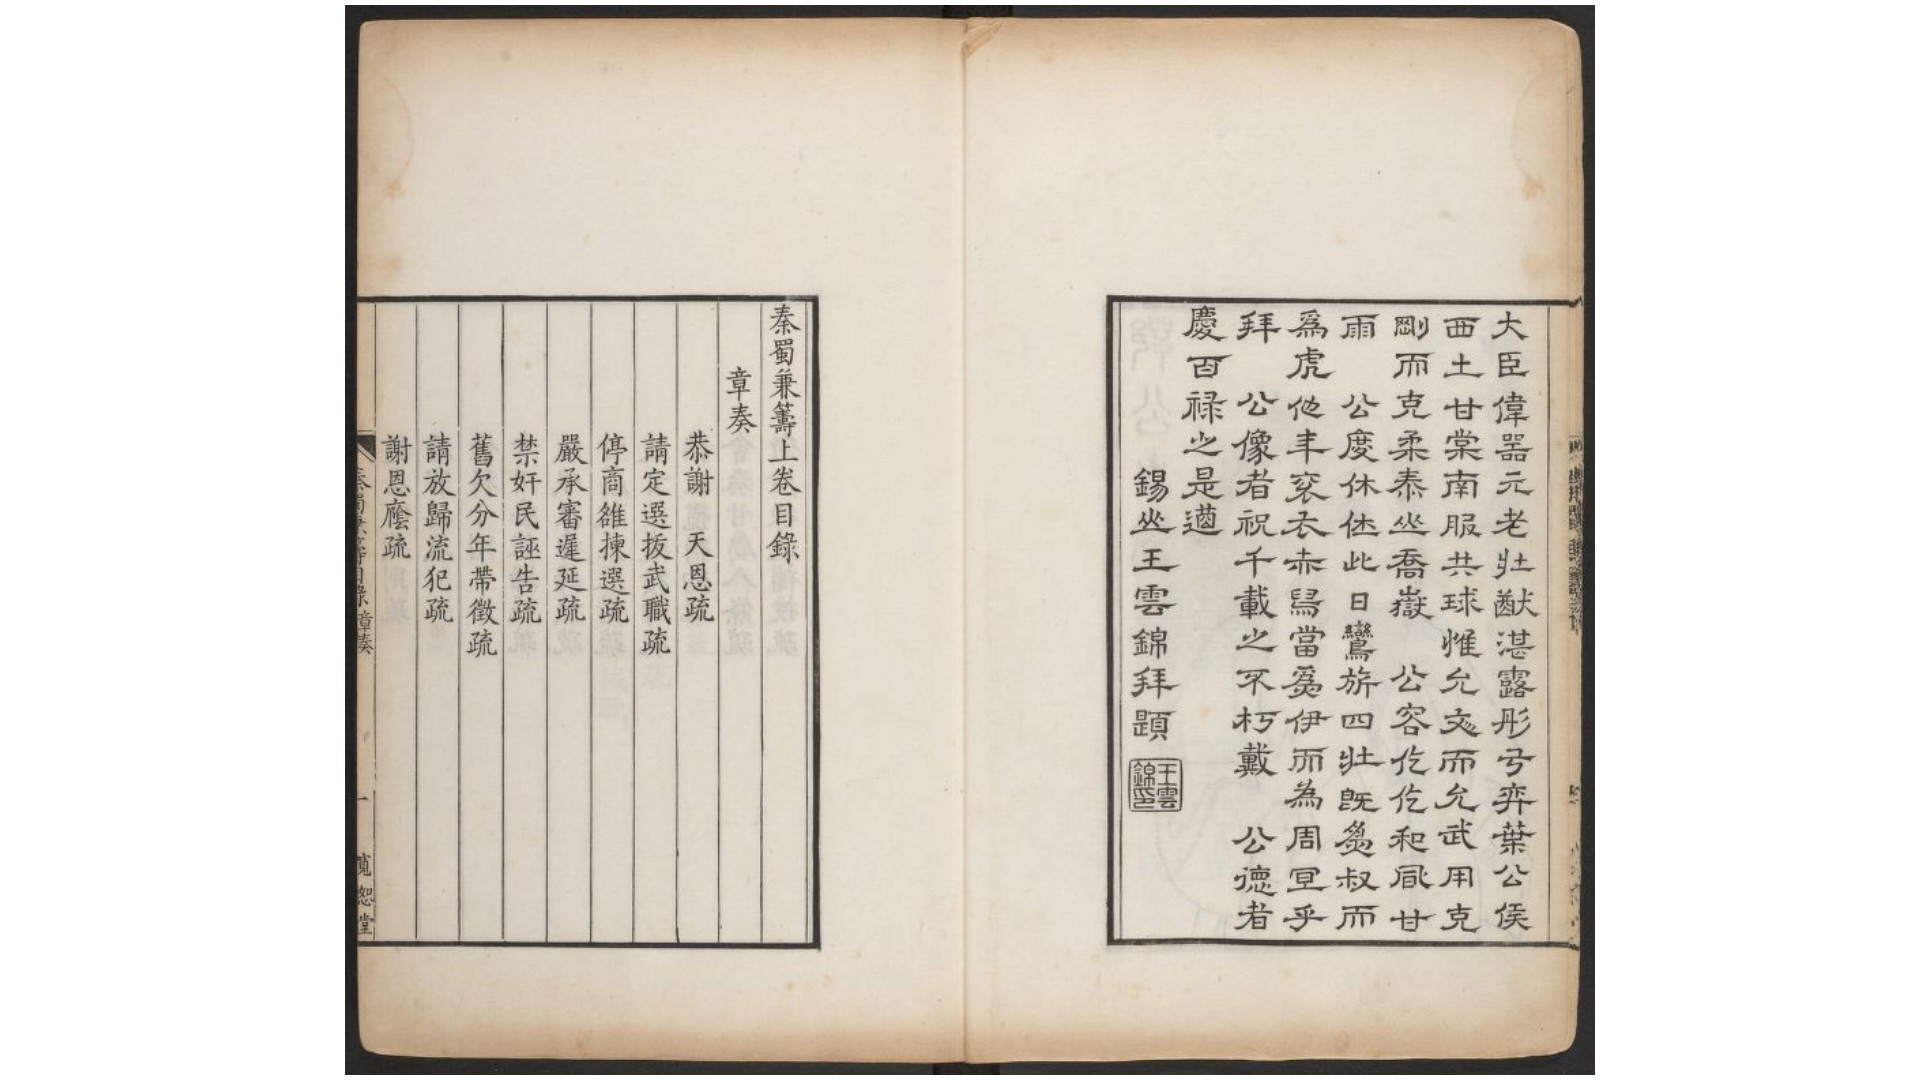 大臣偉器元老壯猷湛露彤弓弈葉公侯
西土甘棠南服共球惟允文而允武用克
剛而克柔泰山喬嶽　公容仡仡和風甘
雨　公度休休此日鸞旂四牡既爲叔而
爲虎他年袞衣赤舄當爲伊而為周亶乎
拜　公像者祝千載之不朽戴　公德者
慶百禄之是遒
錫山王雲錦拜題
王雲錦印
秦蜀兼籌上卷目錄
章奏
恭謝　天恩疏
請定選拔武職疏
停商雒揀選疏
嚴承審遲延疏
禁奸民誣告疏
舊欠分年帶徵疏
請放歸流犯疏
謝恩廕疏
秦蜀兼籌目錄　章奏　一　寬恕堂